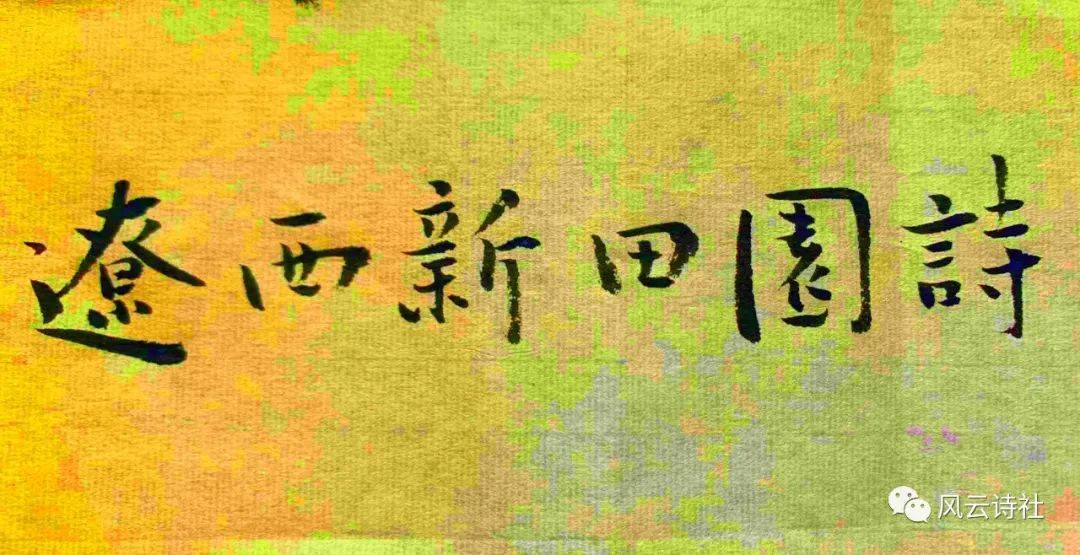 遼西新田園詩
风云诗社